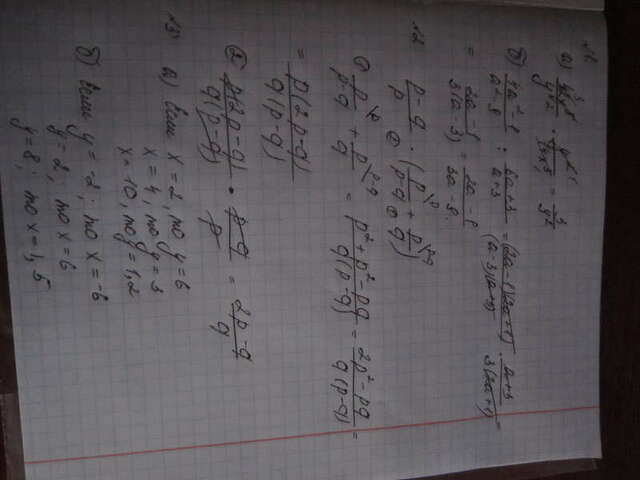 №1
а)
б) (4a²-1)/(a²-9) : (6a+3)/(a+3) = (2a-1)(2a+1)/(a-3)(a+3) · (a+3)/3(2a+1) =
= (2a-1)/3(a-3) = (2a-1)/(3a-9).
№2
(p-q)/p · (p/(p-q) + p/q)
① p/(p-q) + p/q = (p²+p²-pq)/q(p-q) = (2p²-pq)/q(p-q) =
= p(2p-q)/q(p-q)
② p(2p-q)/q(p-q) · (p-q)/p = (2p-q)/q
№3
а) если x=2, то y=6
x=4, то y=3
x=10, то y=1,2
б) если y=-2; то x=-6
y=2; то x=6
y=8; то x=1,5